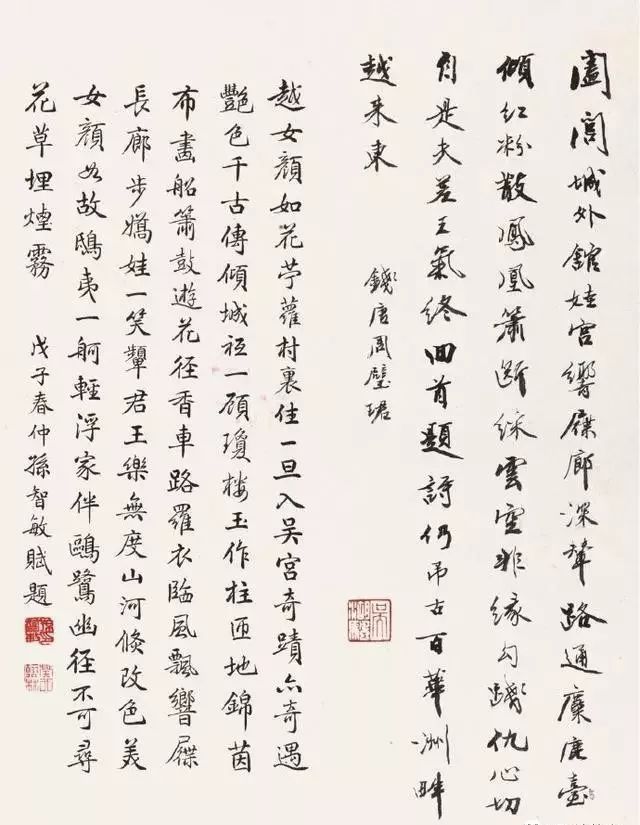 闔閭城外館娃宮響屧廊深輦路通麋鹿臺
傾紅粉散鳳凰簫斷綵雲空非緣勾踐仇心切
自是夫差王氣終回首題詩仍弔古百華洲畔
越来東
錢唐周璧珺
越女顏如花苧蘿村裏住一旦入吴宮奇蹟亦奇遇
艷色千古傳傾城祗一顧瓊樓玉作柱匝地錦茵
布畫船簫鼓遊花径香車路羅衣臨風飄響屧
長廊步嬌娃一笑顰君王樂無度山河倏改色美
女顏如故鴟夷一舸輕浮家伴鷗鷺幽径不可尋
花草埋煙霧
戊子春仲孫智敏賦題